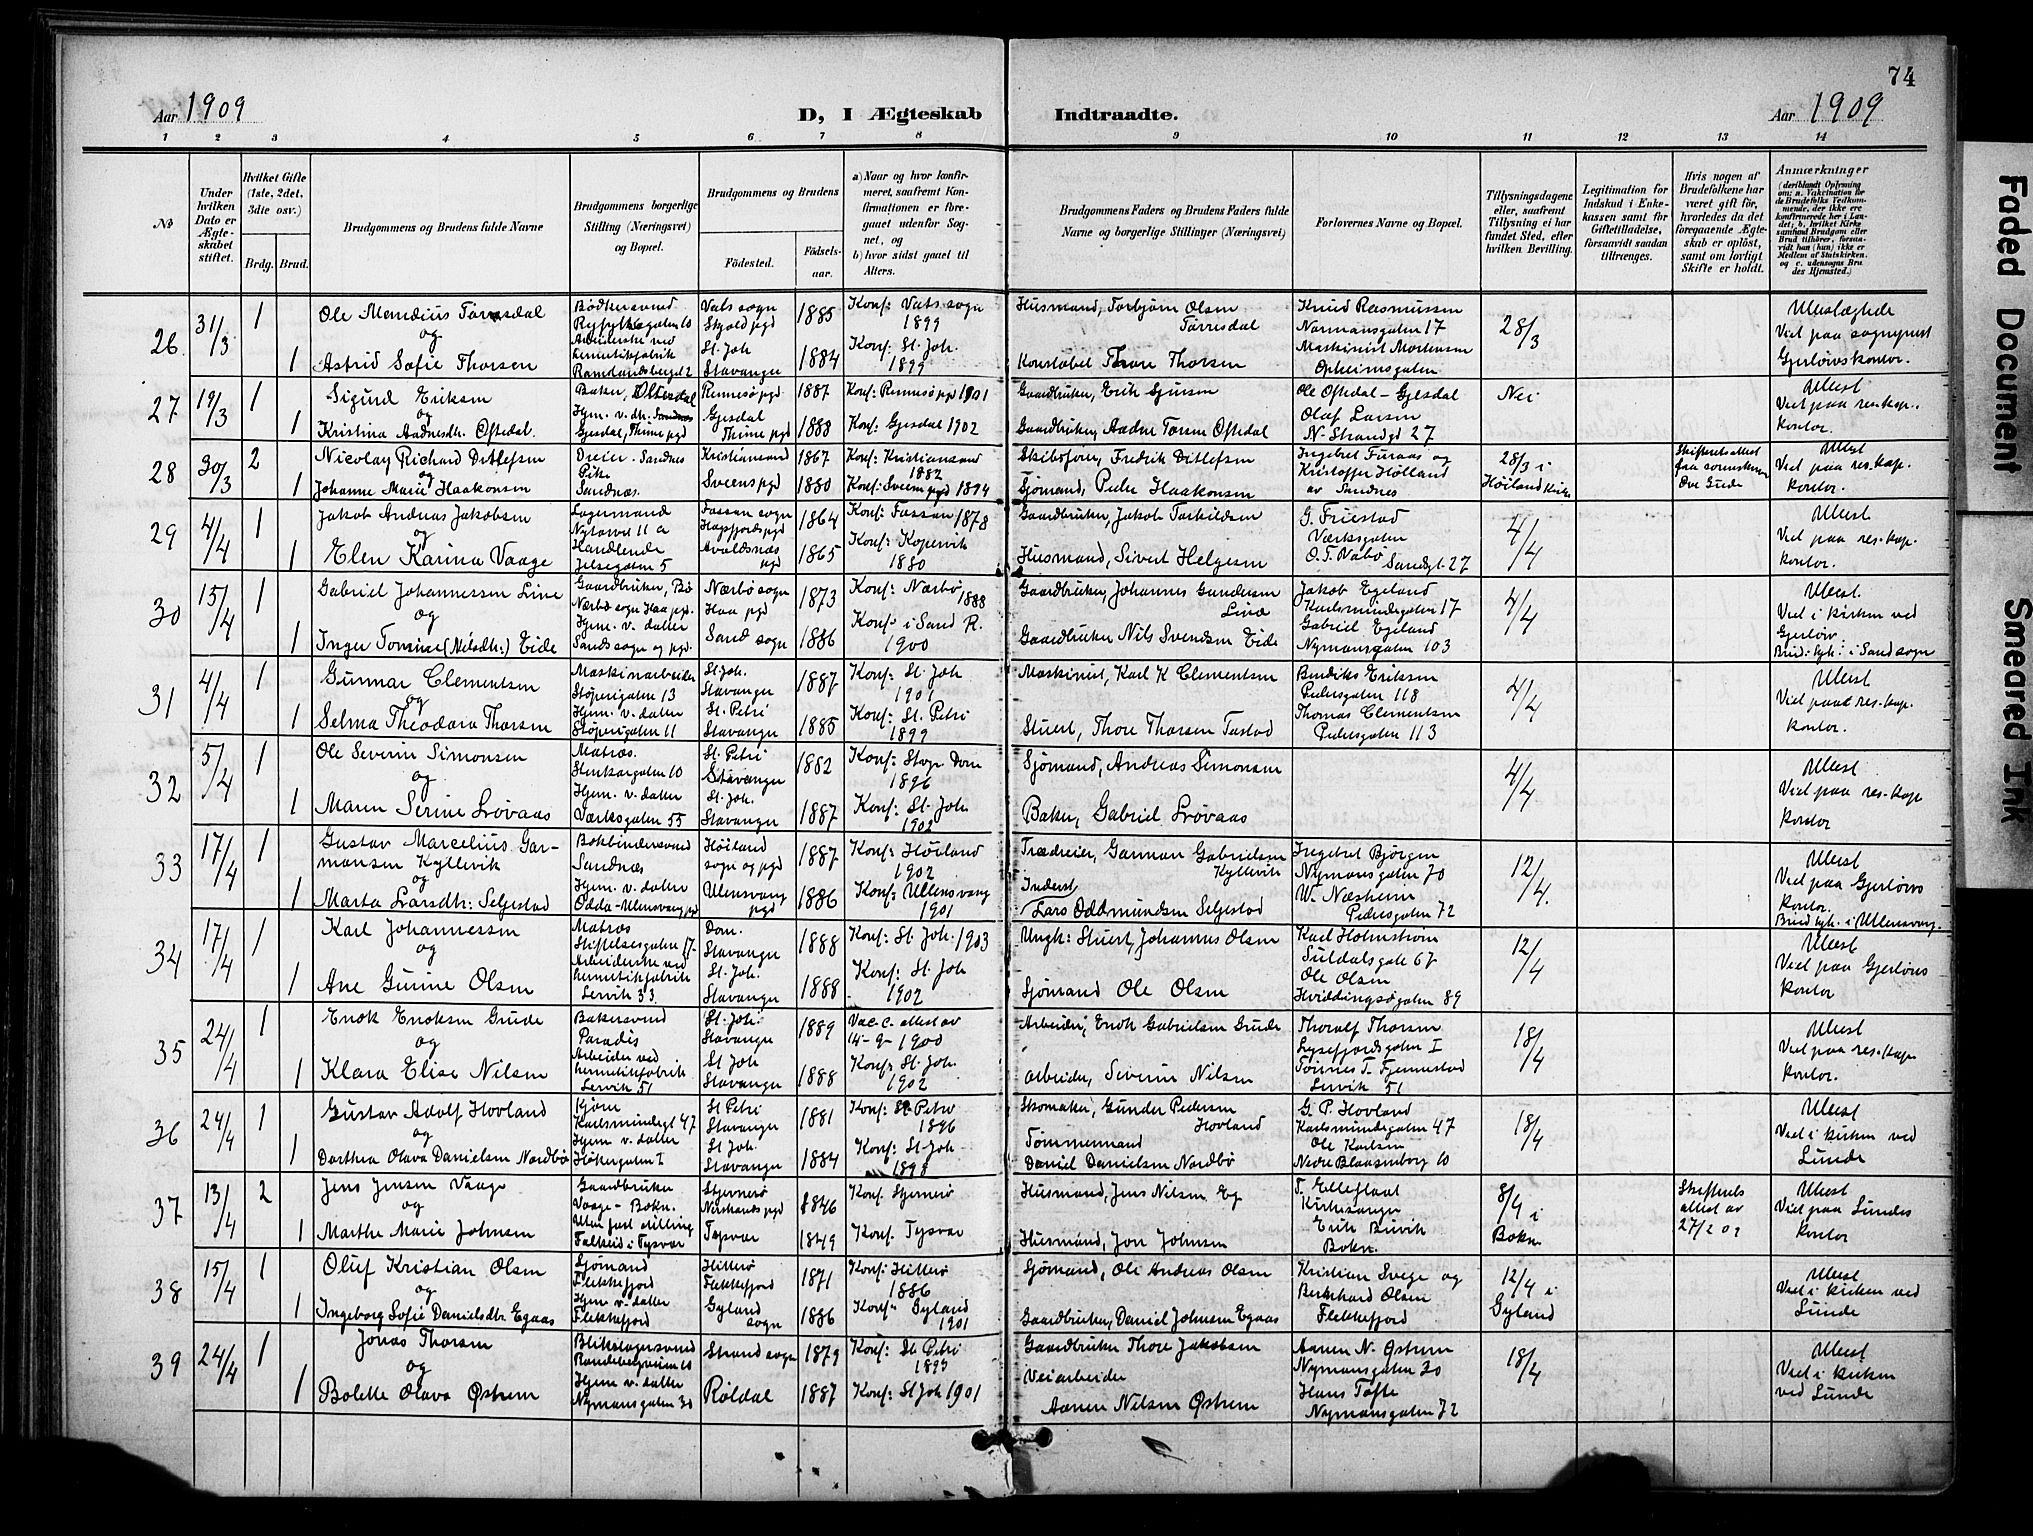 74
Aar 1909
D, I Ægteskab
Indtraadte.
Aar 1909
1 2 3 4 5 6 7 8 9 10 11 12 13 14
No
Under hvilken Dato er Ægteskabet stiftet.
Hvilket Gifte (1ste, 2det, 3die osv.)
Brdg. Brud.
Brudgommens og Brudens fulde Navne
Brudgommens borgerlige Stilling (Næringsvei) og Bopæl.
Brudgommens og Brudens
Fødested.
Fødselsaar.
a) Naar og hvor konfirmeret, saafremt Konfirmationen er foregaaet udenfor Sognet, og
b) hvor sidst gaaet til Alters.
Brudgommens Faders og Brudens Faders fulde Navne og borgerlige Stillinger (Næringsvei)
Forlovernes Navne og Bopæl.
Tillysningsdagene eller, saafremt Tillysning ei har fundet Sted, efter hvilken Bevilling.
Legitimation for Indskud i Enkekassen samt for Giftetilladelse, forsaavidt saadan tiltrænges.
Hvis nogen af Brudefolkene har været gift før, hvorledes da det foregaaende Ægteskab er opløst, samt om lovligt Skifte er holdt.
Anmærkninger
26 31/3 1 1
Ole Mandius Tørresdal
og
Astrid Sofie Thorsen
Vats sogn
Skjold pgd
St. Joh
Stavanger
1885
1884
Konf: Vats sogn
1899
Konf. St. Joh.
1899
Husmand, Torbjørn Olsen
Tørresdal
Konstabel Thore Thorsen
Knud Rasmussen
Normansgaten 17
Maskinist Mortensen
Opheimsgaten
28/3
Viet paa sogneprest
Gjerløvs kontor.
27 19/3 1 1
Sigurd Eriksen
og
Kristina Aadnesdh. Oftedal.
Rennesø pgd
Gjesdal
Thime pgd
1887
1883
Konf: Rennesø pgd 1901
Konf: Gjesdal 1902
Gaardbruker, Erik
Gaardbruker, Aadne Tøresen Oftedal
Ole Oftedal - Gjesdal
Olaf Larsen
N. Strandgd 27
Nei
Attest
Viet paa res. kap.
kontor.
28 30/3 2 1
Nicolay Richard Ditlefsen
og
Johanne Marie Haakonsen
Dreier. Sandnes
Pike
Sandnæs.
Kristiansand
Sveens pgd
1867
1880
Konf: Kristiansand
1882
Konf: Sveens pgd 1894
Skibsfører, Fredrik Ditlefsen
Sjømand, Peder Haakonsen
Ingebret Furaas og
Kristoffer Høiland
av Sandnes
28/3 i
Høiland Kirke
Ove Gude
Attest
Viet paa res. kap.
kontor.
29 4/4 1 1
Jakob Andreas Jakobsen
og
Elen Karina Vaage
Lagermand
Nylovei 11 a
Handlende
Jelsegaten 5
Fossan sogn
Høgsfjords pgd
Avaldsnæs
pgd
1864
1865
Konf: Fossan 1878
Konf: Kopervik
1880
Gaardbruker, Jakob Torkildsen
Husmand, Sivert Helgesen
G. Friestad
Værksgaten
O. T. Vabø
Sandgt. 27
4/4
Attest
Viet paa res. kap.
kontor.
30 15/4 1 1
Gabriel Johannessen Line
og
Inger Tomine (Nilsdh:) Eide
Gaardbruker, Bø
Nærbø sogn Haa pgd.
Hjem. v. datter
Sands sogn og pgd.
Nærbø sogn
Haa pgd
Sand sogn
1873
1886
Konf: Nærbø 1888
Konf: i Sand R.
1900
Gaardbruker, Johannes Gundersen
Line
Gaardbruker Nils Svendsen Eide
Jakob Egeland
Karlsmindegaten 17
Gabriel Egeland
Nymansgaten 103
4/4
Attest.
Viet i kirken ved
Gjerløv.
Brud: lyst: i Sand sogn
31 4/4 1 1
Gunnar Clementsen
og
Selma Theodora Thorsen
Maskinarbeider
Støperigaten 13
Hjem. v. datter
Støperigaten 11
St. Joh.
Stavanger
St. Petri
Stavanger
1887
1885
Konf: St. Joh
1901
Konf: St. Petri
1899
Maskinist, Karl K Clementsen
Stuert, Thore Thorsen Tastad
Bendiks Eriksen
Pedersgaten 118
Thomas Clementsen
Pedersgaten 113
4/4
Attest
Viet paa res. kap.
kontor.
32 5/4 1 1
Ole Severin Simonsen
og
Maren Serine Løvaas
Matros.
Stenkargaten 10
Hjem. v. datter
Værksgaten 55
St. Petri
Stavanger
St. Joh.
Stavanger
1882
1887
Konf: Stvgr Dom
1896
Konf: St. Joh
1902
Sjømand, Andreas Simonsen
Baker, Gabriel Løvaas
4/4
Attest
Viet paa res. kap
kontor
33 17/4 1 1
Gustav Marcelius Garmansen Kyllevik
og
Marta Larsdh: Seljestad
Bokbindersvend
Sandnæs
Hjem. v. datter
Odda - Ullensvang pgd
Høiland
sogn og pgd
Ullensvang
pgd
1887
1886
Konf: Høiland
1902
Konf: Ullensvang
1901
Trædreier, Garman Gabrielsen
Kyllevik
Inderst
Lars Oddmundsen Seljestad
Ingebret Bjørgen
Nymansgaten 70
W. Næsheim
Pedersgaten 72
12/4.
Attest
Viet paa Gjerløvs
kontor.
Brud lyst. i Ullensvang.
34 17/4 1 1
Karl Johannessen
og
Ane Gurine Olsen
Matros
Stiftelsesgaten 17.
Arbeiderske ved
hermetikfabrik
Lervik 33.
Dom.
Stavanger
St. Joh.
Stavanger
1888
1888
Konf: St. Joh. 1903
Konf: St. Joh
1902
Ungk: Stuert, Johannes Olsen
Sjømand Ole Olsen
Karl Holmstrøm
Suldalsgate 67
Ole Olsen
Hviddingsøgaten 89
12/4
Attest
Viet paa Gjerløvs
kontor
35 24/4 1 1
Enok Enoksen Gude
og
Klara Elise Nilsen
Bakersvend
Paradis
Arbeider ved
hermetikfabrik
Lervik 51
St. Joh:
Stavanger
St Joh
Stavanger
1889
1888
Vac. c. attest av
14-9-1900
Konf: St. Joh.
1902
Arbeider, Enok Gabrielsen Gude
Arbeider, Severin Nilsen
Thoralf Thorsen
Lysefjordsgaten I
Tønnes T. Fjermestad
Lervik 51
18/4
Attest
Viet paa res. kap.
kontor.
36 24/4 1 1
Gustav Adolf Hovland
og
Dorthea Olava Danielsen Nordbø
Kjøre
Karlsmindegt 47
Hjem v. datter
Høkergaten I
St Petri
Stavanger
St Joh
Stavanger
1881
1884
Konf: St. Petri
1896
Konf: St. Joh
1898
Skomaker, Gunder Pedersen
Hovland
Tømmermand
Daniel Danielsen Nordbø
G. P. Hovland
Karlsmindegaten 47
Ole Karlsen
Nedre Blaasenborg 10
18/4
Attest
Viet i kirken ved
Lunde
37 13/4 2 1
Jens Jensen Vaage
og
Marthe Marie Johnsen
Gaardbruker
Vaage - Bokn.
Uten fast stilling
Falkeid i Tysvær
Stjernerø
Nerstrands pgd
Tysvær
1846
1849
Konf. Stjernerø
Konf. Tysvær
Husmand, Jens Nilsen Eg
Husmand, Jon Johnsen
T. Elleflaat
Kirkesanger
Erik Breivik
Bokn.
8/4 i
Bokn
Skifterets
attest av
27/2 09
Attest
Viet paa Lundes
kontor
38 15/4 1 1
Oluf Kristian Olsen
og
Ingeborg Sofie Danielsdtr Egaas
Sjømand
Flekkefjord
Hjem v. datter
Flekkefjord
Hitterø
Flekkefjord
Gyland
sogn
1871
1886
Konf: Hitterø
1886
Konf: Gyland
1901
Sjømand, Ole Andreas Olsen
Gaardbruker, Daniel Johnsen Egaas
Kristian Svege og
Bernhard Olsen
Flekkefjord
12/4 i
Gyland
Attest
Viet i kirken ved
Lunde
39 24/4 1 1
Jonas Thorsen
og
Bolette Olava Østrem
Blikslagersvend
Hjem v. datter
Nymansgaten 30
Strand sogn
Røldal
1879
1887
Konf: St Petri
1893
Konf: St Joh 1901
Gaardbruker Thore Jakobsen
Veiarbeider
Aanen Nilsen Østrem
Aanen N. Østrem
Nymansgaten 30
Hans Tofte
Nymansgaten 72
18/4
Attest
Viet i kirken
ved Lunde
Faded Document
Smeared Ink